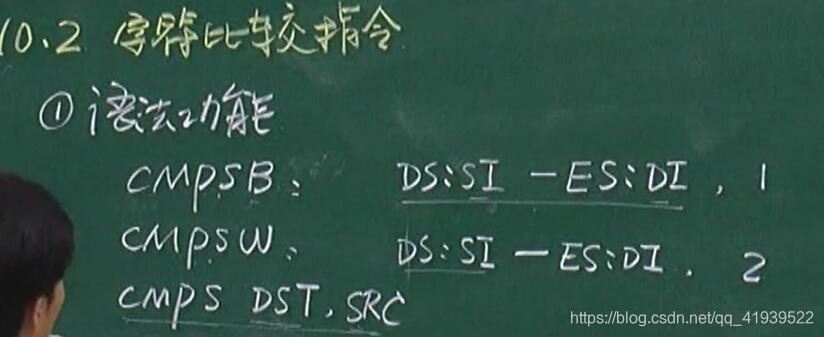 10.2 字符比较指令
①语法功能
CMPSB: DS:SI - ES:DI , 1
CMPSW: DS:SI - ES:DI . 2
CMPS DST, SRC
https://blog.csdn.net/qq_41939522